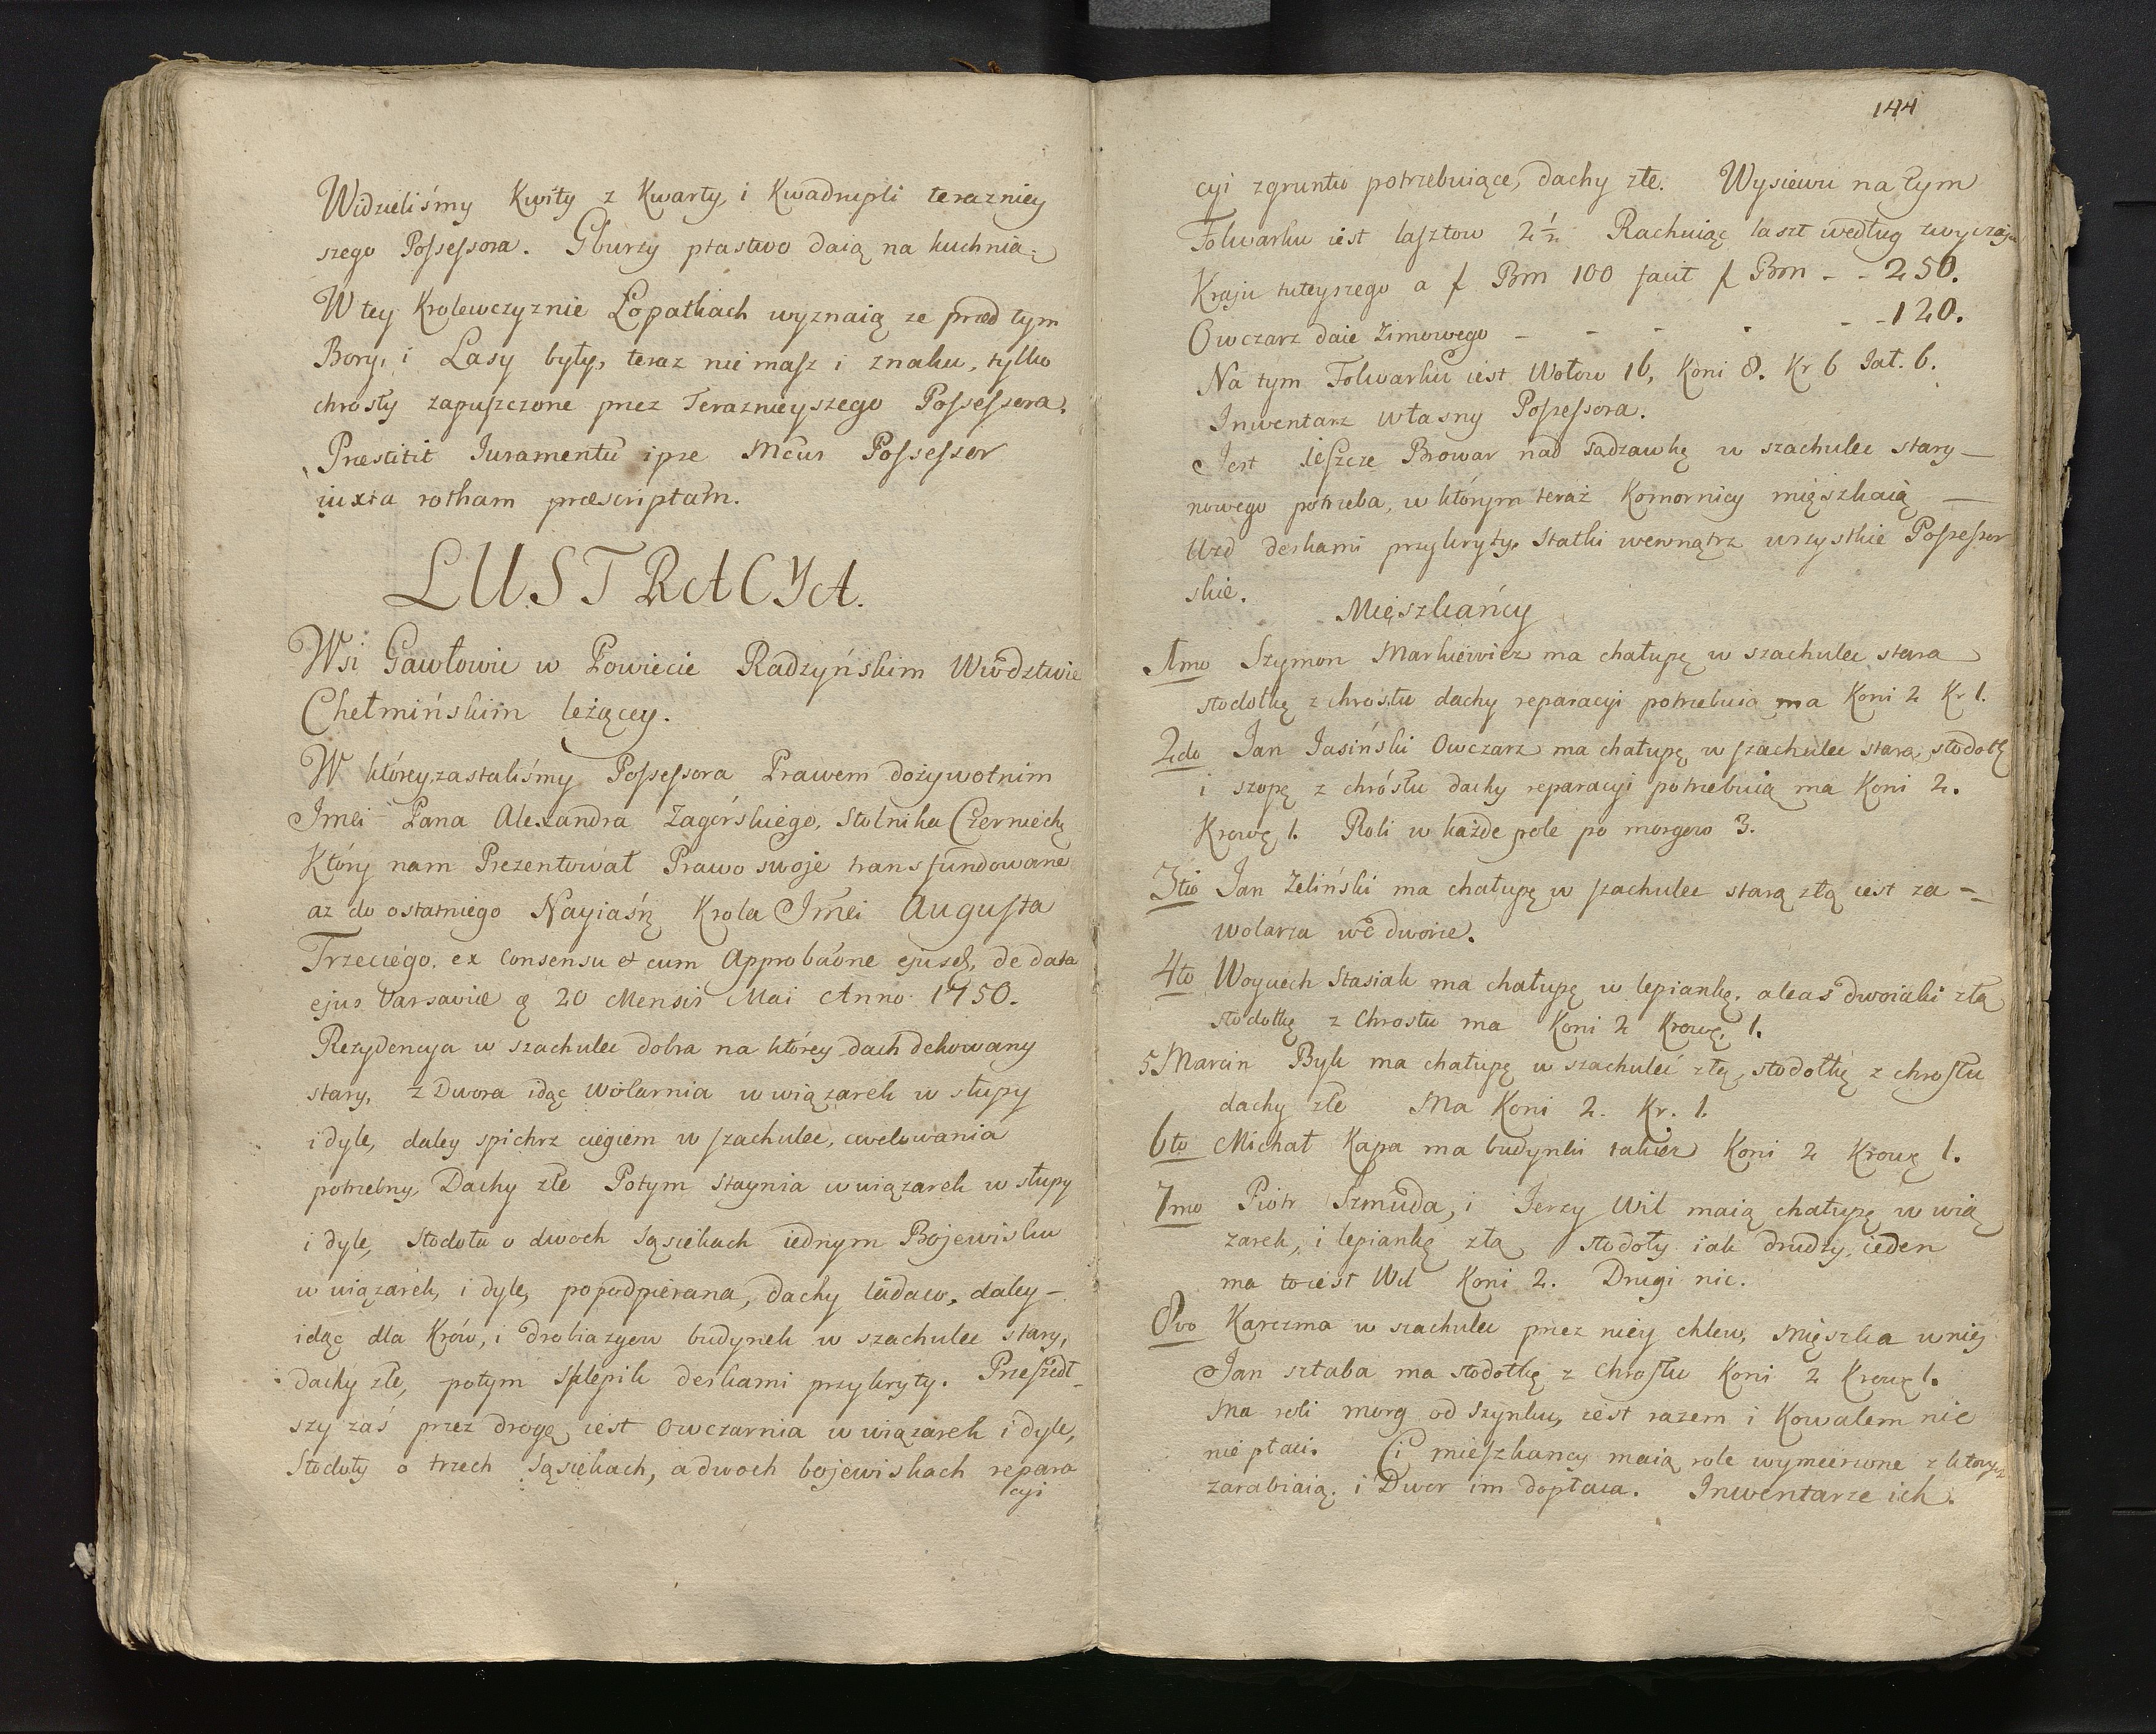 Widzieliśmy Kwity z Kwarty, i Kwadrupli terazniey
szego Possessora. Gburzy ptastwo daią na kuchnią.
W tey Krolewczyznie Łopatkach wyznaią ze przed tym
Bory, i Lasy były, teraz nie masz i znaku, tylko
chrosty zapuszczone przez Teraznieyszego Possessora.
Præstitit Juramentū ipse Mcus Possessor
iuxta rotham præscriptam.
LUSTRACYA.
Wsi Gawłowie w Powiecie Radzyńskim Wwodztwie
Chełmińskim leżącey.
W którey zastaliśmy Possessora Prawem dożywotnim
Jmći Pana Alexandra Zagórskiego, Stolnika Czerniechę
Który nam Prezentował Prawo swoje transfundowane
az do ostatniego Nayiaśń Krola Jmći Augusta
Trzeciego. ex Consensu et cum Approbaone ejusd, de data
ejus Varsaviæ 20 Mensis Mai Anno 1750.
Rezydencya w szachulec dobra na którey dach dekowany
stary, z Dwora idąc Wolarnia w wiązarek w słupy
i dyle, daley spichrz ciegiem w szachulec, cwelowania
potrzebny, Dachy złe Potym Staynia w wiązarek w słupy
i dyle, Stodoła o dwoch Sąsiekach iednym Bojewisku
w wiązarek, i dyle, popodpierana, dachy ladaco, daley -
idąc dla Krów, i drobiazgow budynek w szachulec stary,
dachy złe, potym Sklepik deskami przykryty. Przeszedł-
szy zaś przez drogę iest Owczarnia w wiązarek i dyle,
Stodoły o trzech Sąsiekach, a dwoch bojewiskach repara
cyi
144
cyi zgruntu potrzebuiące, dachy złe. Wysiewu na tym
Folwarku iest lasztow 2½ Rachuiąc łaszt według zwyczaju
Kraju tuteyszego a f Prn 100 facit f Prn - - 250.
Owczarz daie Zimowego - - - - - - 120.
Na tym Folwarku iest Wołow 16, Koni 8. Kr 6 Jał. 6.
Inwentarz własny Possessora.
Jest ieszcze Browar nad Sadzawką w szachulec stary -
nowego potrzeba, w którym teraz Komornicy mięszkaią -
Uzd deskami przykryty. Statki wewnątrz wszystkie Possessor
skie.
Mięszkańcy
1mo Szymon Markiewicz ma chałupę w szachulec stara
stodołkę z chrostu dachy reparacyi potrzebuią ma Koni 2 Kr 1.
2do Jan Jasiński Owczarz ma chałupę w szachulec stara, stodołę
i szopę z chróstu dachy reparacyi potrzebuią ma Koni 2.
Krowę 1. Roli w każde pole po morgow 3.
3tio Jan Zeliński ma chałupę w szachulec starą złą iest za -
wolarza we dworze.
4to Woyciech Stasiak ma chałupę w lepiankę, aleas dwoiaki złą
stodołkę z Chrostu ma Koni 2 Krowę 1.
5 Marcin Byk ma chałupę w szachulec złą, stodołkę z chrostu
dachy złe Ma Koni 2. Kr. 1.
6to Michał Kapa ma budynki takież Koni 2 Krowę 1.
7mo Piotr Szmuda, i Jerzy Wil maią chałupę w wią
zarek, i lepiankę złą stodoły iak drudzy, ieden
ma toiest Wil Koni 2. Drugi nic.
8vo Karczma w szachulec przez niey chlew, mięszka w niej
Jan sztaba ma stodołkę z Chrostu Koni 2 Krowę 1.
Ma roli morg od szynku, iest razem i Kowalem nic
nie płaci. Ci mieszkancy maią role wymierzone z ktorych
zarabiaią, i Dwor im dopłaca. Inwentarze ich.